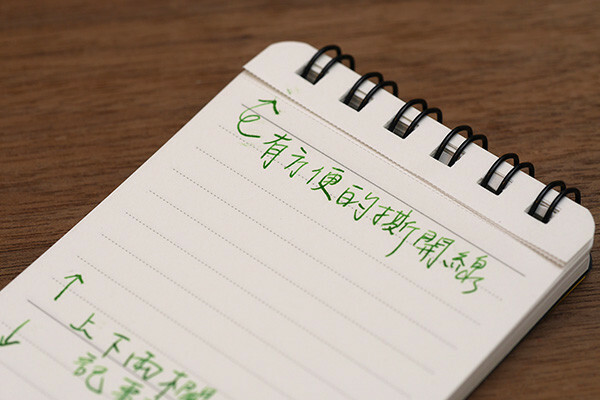 有方便的撕開線
↑ 上下兩欄
↓ 記事